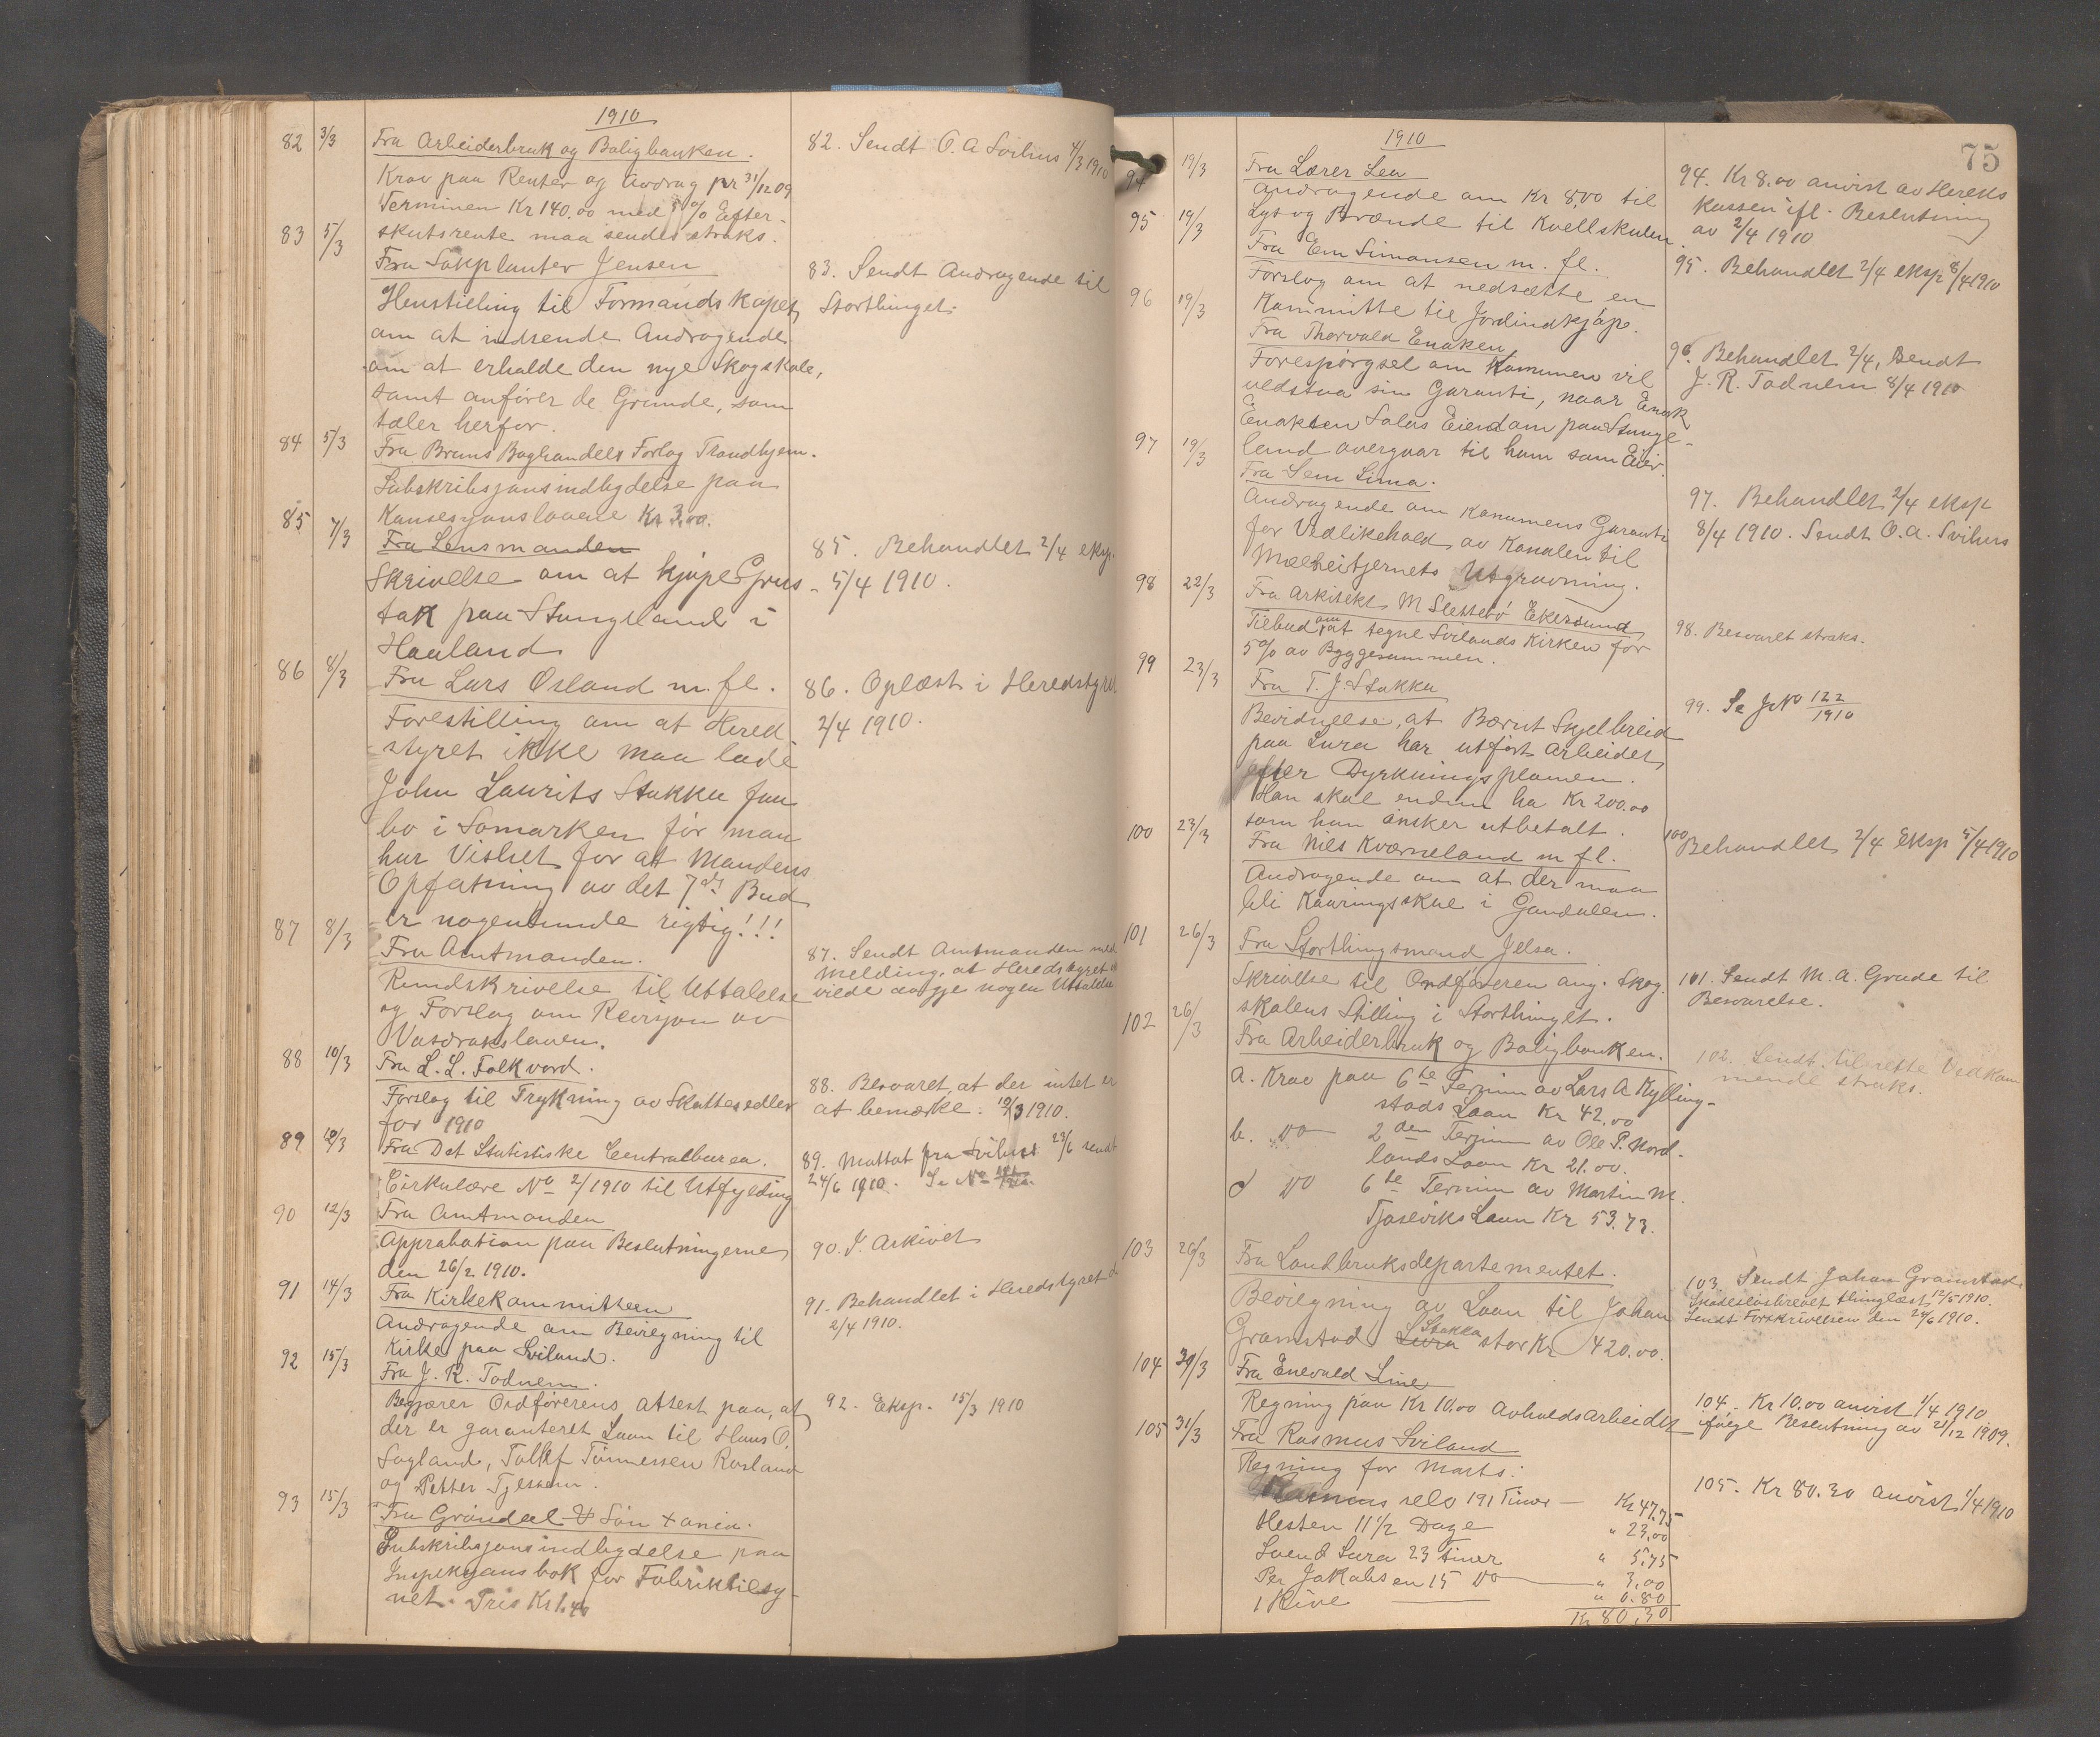 1910
82 3/3 Fra Arbeiderbruk og Boligbanken.
Krav paa Renter og Avdrag pr 31/12 09
Terminen Kr 140.00 med 5% Efter-
skutsrente maa sendes straks.
82. Sendt O. A Svihus 4/3 1910
83 5/3 Fra Sakplanter Jensen
Henstilling til Formandskapet
om at indsende Andragende
om at erholde den nye Skogskole,
samt anfører de Grunde, som
taler herfor.
83. Sendt Andragende til
Storthinget.
84 5/3 Fra Bruns Boghandels Forlag Trondhjem.
Subskribsjonsindbydelse paa
Konsesjonslovene Kr 3.00.
85 7/3 Fra Lensmanden
Skrivelse om at kjøpe Grus-
tak paa Stangeland i
Haaland
85. Behandlet 2/4 eksp.
5/4 1910.
86 8/3 Fra Lars Osland m. fl.
Forestilling om at Hered
styret ikke maa lade
John Laurits Stokka faa
bo i Somarken før man
har Vished for at Mandens
Opfatning av det 7de Bud
er nogenlunde rigtig!!!
86. Oplæst i Heredstyret
2/4 1910.
87 8/3 Fra Amtmanden.
Rundskrivelse til Uttalelse
og Forslag om Revisjon av
Vasdrakslaven.
87. Sendt Amtmanden med
Melding, at Heredstyret ei
vilde avgje nogen Uttalelse
88 10/3 Fra L. L. Folkvord.
Forslag til Trykning av Skattesedler
for 1910
88. Besvaret at der intet er
at bemerke. 10/3 1910.
89 10/3 Fra Det Statistiske Centralburea.
Cirkulære No 2/1910 til Utfylding
89. Mottat fra Svihus 23/6 sendt
24/6 1910. Se No
90 12/3 Fra Amtmanden
Approbation paa Beslutningerne
den 26/2 1910.
90. I Arkivet
91 14/3 Fra Kirkekommitteen
Andragende om Bevilgning til
Kirke paa Sviland.
91. Behandlet i Heredstyret d
2/4 1910.
92 15/3 Fra J. R. Todnem.
Begjærer Ordførerens Attest paa, at
der er garanteret Laan til Hans O.
Sagland, Tollef Tønnessen Rosland
og Petter Tjessem.
92. Eksp. 15/3 1910
93 15/3 Fra Grøndal & Søn Xania.
Subskribsjonsindbydelse paa
Inspeksjonsbok for Fabriktilsy-
net. Pris Kr 1.40
75
1910
94 19/3 Fra Lærer Lea
Andragende om Kr 8,00 til
Lys og Brænde til Kvellskulen.
94. Kr 8.00 anvist av Hereds
kassen ifl. Beslutning
av 2/4 1910
95 19/3 Fra Em Simonsen m. fl.
Forslag om at nedsætte en
Kommitte til Jordindkjøp.
95. Behandlet 2/4 eksp 8/4 1910
96 19/3 Fra Thorvald Enoksen
Forespørgsel om Komunen vil
vedstaa sin Garanti, naar Enok
Enoksen Salas Eiendom paa Stange-
land overgaar til ham som Eier.
96. Behandlet 2/4, Sendt
J. R. Todnem 8/4 1910
97 19/3 Fra Sem Lima.
Andragende om Komunens Garanti
for Vedlikehold av Kanalen til
Mælheitjernets Utgravning.
97. Behandlet 2/4 eksp
8/4 1910. Sendt O. A. Svihus
98 22/3 Fra Arkitekt M Slettebø Ekersund
Tilbud om at tegne Svilands Kirken for
5% av Byggesummen.
98. Besvaret straks.
99 23/3 Fra T. J. Stokka
Bevidnelse, at Bernt Skjelbreid
paa Lura har utført Arbeidet
efter Dyrkningsplanen.
Han skal endnu ha Kr 200.00
som han ønsker utbetalt.
99. Se JNo 122/1910
100 23/3 Fra Nils Kverneland m fl.
Andragende om at der maa
bli Kaaringsskue i Gandalen.
100 Behandlet 2/4 Eksp 5/4 1910
101 26/3 Fra Storthingsmand Jelsa.
Skrivelse til Ordføreren ang. Skog
skolens Stilling i Storthinget.
101. Sendt M. A. Grude til
Besvarelse.
102 26/3 Fra Arbeiderbruk og Boligbanken.
a. Krav paa 6te Termin av Lars A Kylling-
stads Laan Kr 42,00
b. do 2den Termin av Ole P. Nord-
lands Laan Kr 21.00.
d do 6te Termin av Martin M.
Tjosevik Laan Kr 53.73.
102. Sendt til rette Vedkom
mende straks.
103 26/3 Fra Landbruksdepartementet.
Bevilgning av Laan til Johan
Gramstad Lura Stokka stor Kr 420.00.
103. Sendt Johan Gramstad
Skadesløsbrevet thinglæst 12/5 1910.
Sendt Forskrivelsen den 24/6 1910.
104 30/3 Fra Enevald Line
Regning paa Kr 10.00 Avholdsarbeidet
104. Kr 10.00 anvist 1/4 1910
ifølge Beslutning av 21/12 1909.
105 31/3 Fra Rasmus Sviland
Regning for Marts:
Rasmus selv 191 Timer — Kr 47.75
Hesten 11 1/2 Dage " 23,00
Svend Lura 23 timer " 5,75
Per Jakobsen 15 do " 3,00
1 Rive " 0.80
Kr 80,30
105. Kr 80.30 Anvist 1/4 1910